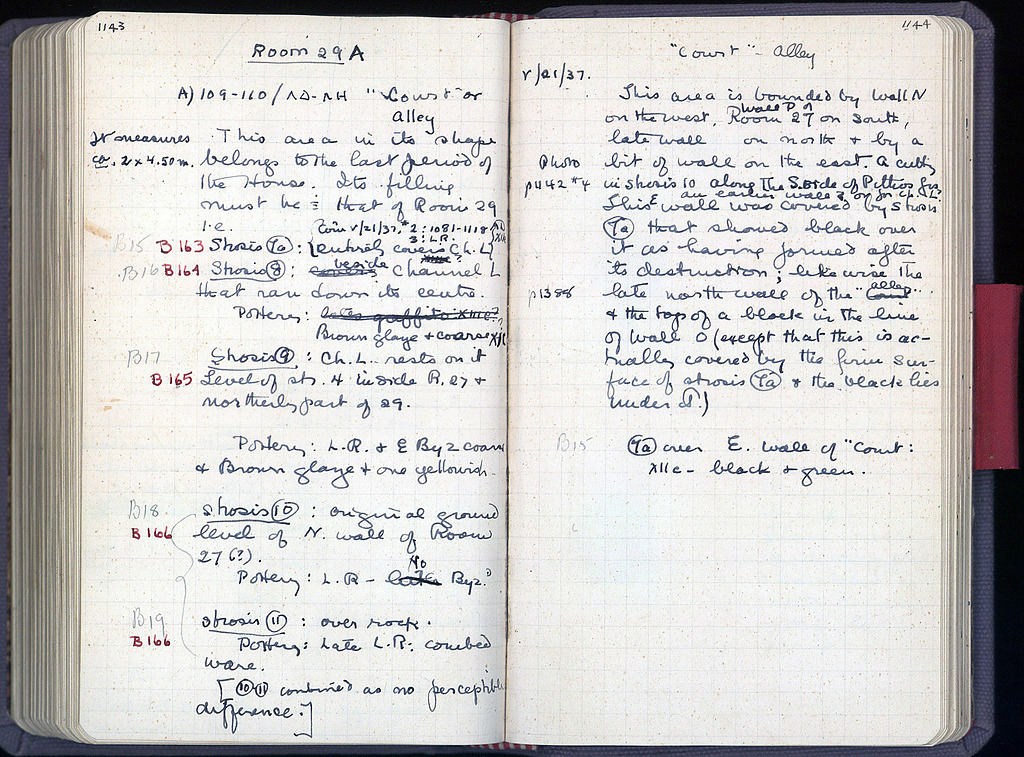 1143
Room 29 A
A) 109-110/ΛΔ-ΛΗ "Court" or
Alley
It measures This area in its shape
ca. 2 x 4.50 m. belongs to the last period of
the House. Its filling
must be = that of Room 29
i.e. Coin V/21/37. #2: 1081-1118
3: L.R.
B15 B163 Strosis (7a): entirely covers Ch. L
B16 B164 Strosis (8): covers beside Channel L
that ran down its centre.
Pottery: late sgraffito XIII c?
Brown glaze + coarse XII
B17 Strosis (9): Ch. L. rests on it
B165 Level of str. 4 inside R. 27 +
northerly part of 29.
Pottery: L.R. + E Byz coarse
+ Brown glaze + one yellowish
B18. Strosis (10): original ground
B166 level of N. wall of Room
27 (?).
Pottery: L.R - late No Byz.
B19 Strosis (11): over rock.
B166 Pottery: Late L.R. combed
ware.
[(10) (11) combined as no perceptible
difference.]
1144
"Court" - Alley
V/21/37.
This area is bounded by wall N
on the west, wall P of Room 27 on south,
late wall on north + by a
Photo bit of wall on the east. A cutting
p1142 #4 in strosis 10 along the S. side of Pithos
an earlier wall
This E wall was covered by strosis
(7a) that showed black over
it as having formed after
its destruction; likewise the
p1388 late north wall of the "Court alley"
+ the top of a block in the line
of wall O (except that this is ac-
tually covered by the firm sur-
face of strosis (7a) + the black lies
under it.)
B15 (7a) over E. wall of "Court:
XII c - black + green.